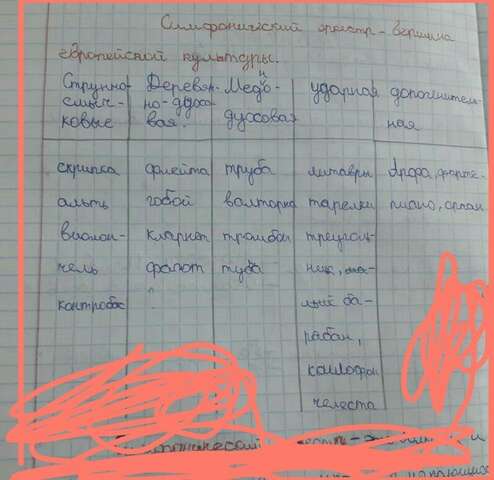 Симфонический оркестр - вершина
европейской культуры.
Струнно-
смыч-
ковые
Деревян-
но-духо-
вая.
Медно-
духовая
ударная
дополнитель-
ная
скрипка
альть
виолон-
чель
контробас
флейта
гобой
кларнет
фагот
труба
валторна
тромбон
туба
литавры
тарелки
треуголь-
ник, ма-
лый ба-
рабан,
ксилофон
челеста
арфа, форте-
пиано, орган.